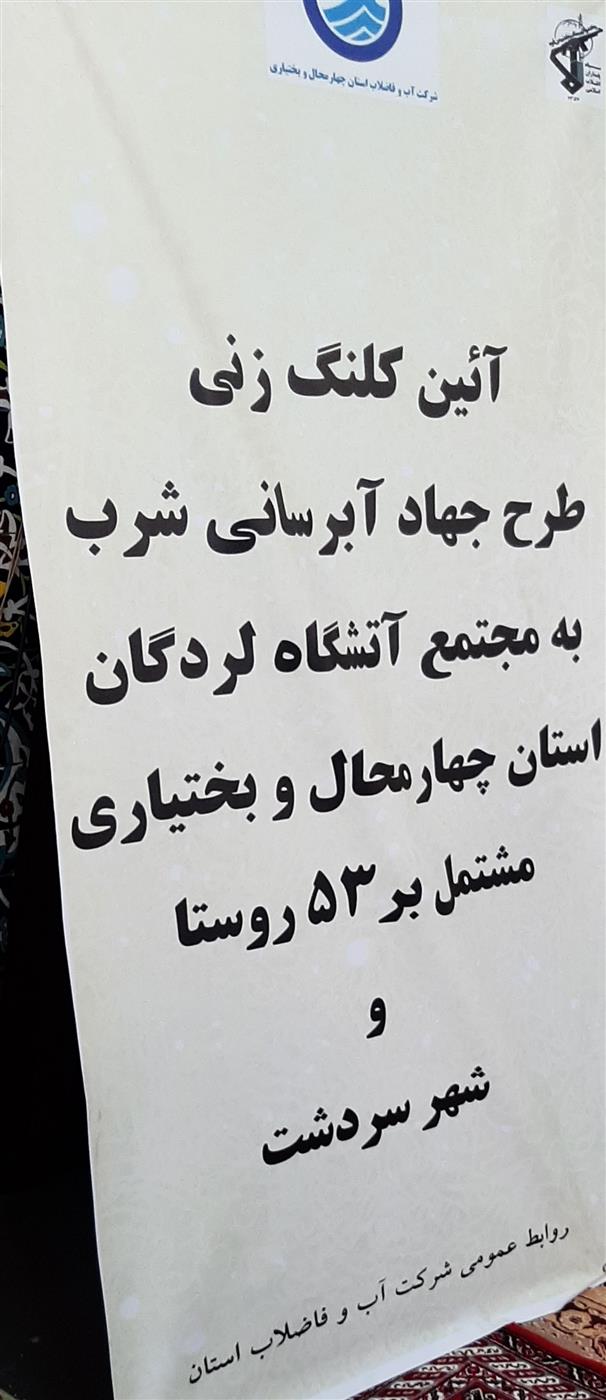 شرکت آب و فاضلاب استان چهارمحال و بختیاری
آئین کلنگ زنی
طرح جهاد آبرسانی شرب
به مجتمع آتشگاه لردگان
استان چهارمحال و بختیاری
مشتمل بر ۵۳ روستا
و
شهر سردشت
روابط عمومی شرکت آب و فاضلاب استان